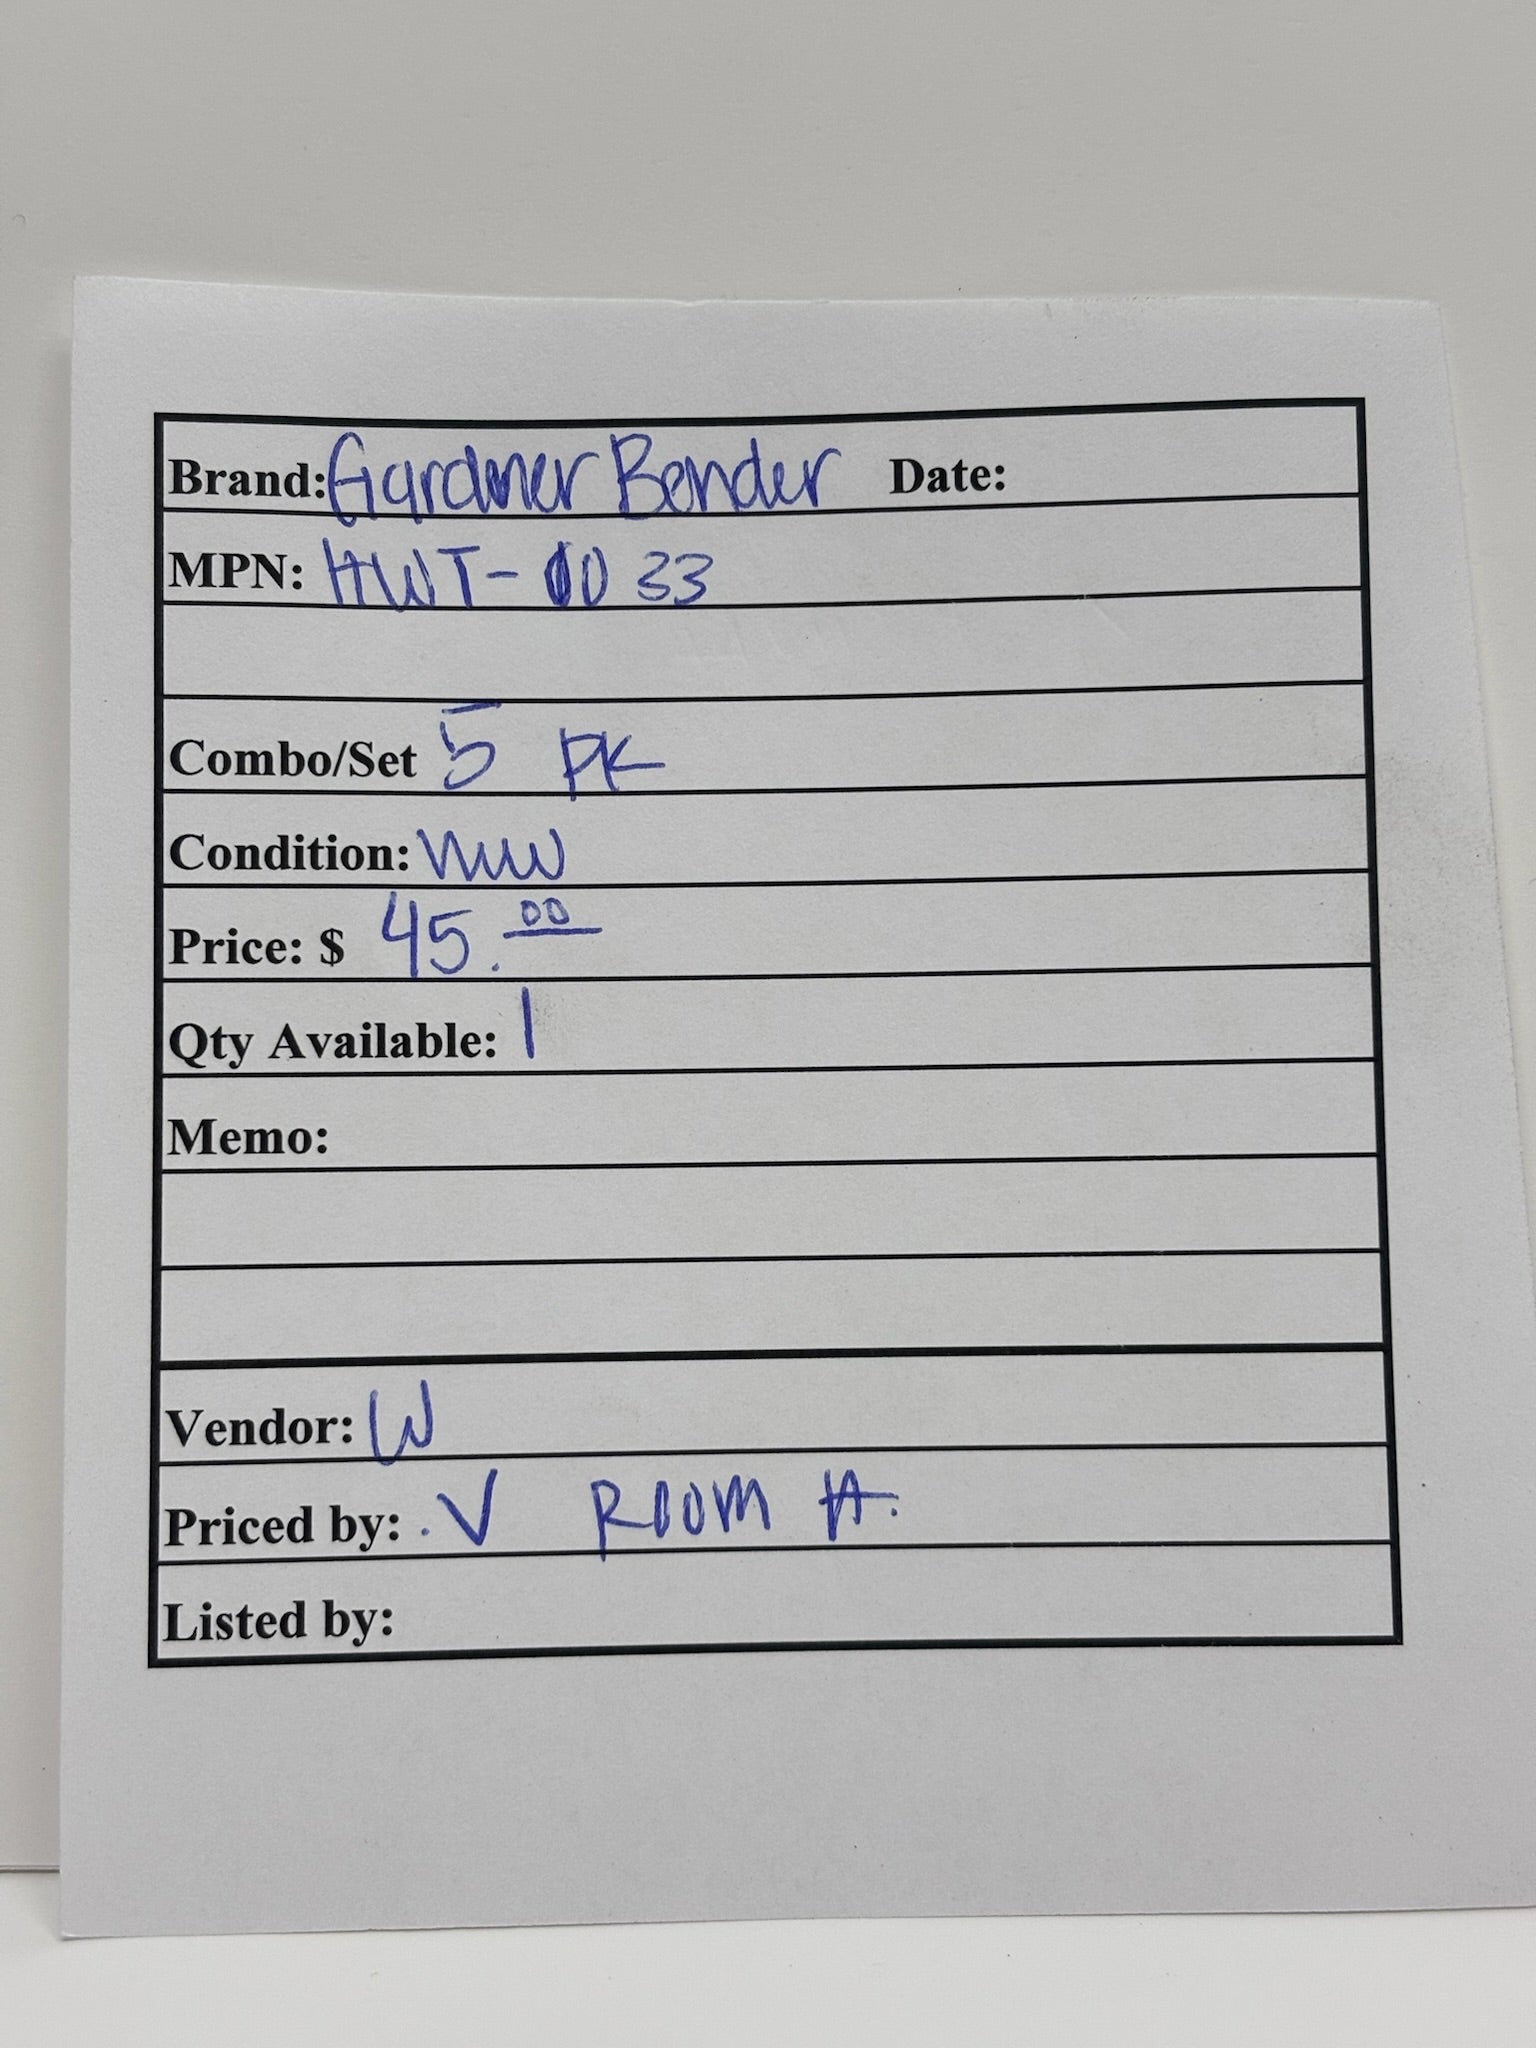 Brand: Gardner Bender Date:
MPN: HWT-0033
Combo/Set 5 PK
Condition: new
Price: $ 45.00
Qty Available: 1
Memo:
Vendor: W
Priced by: .V ROOM A.
Listed by: